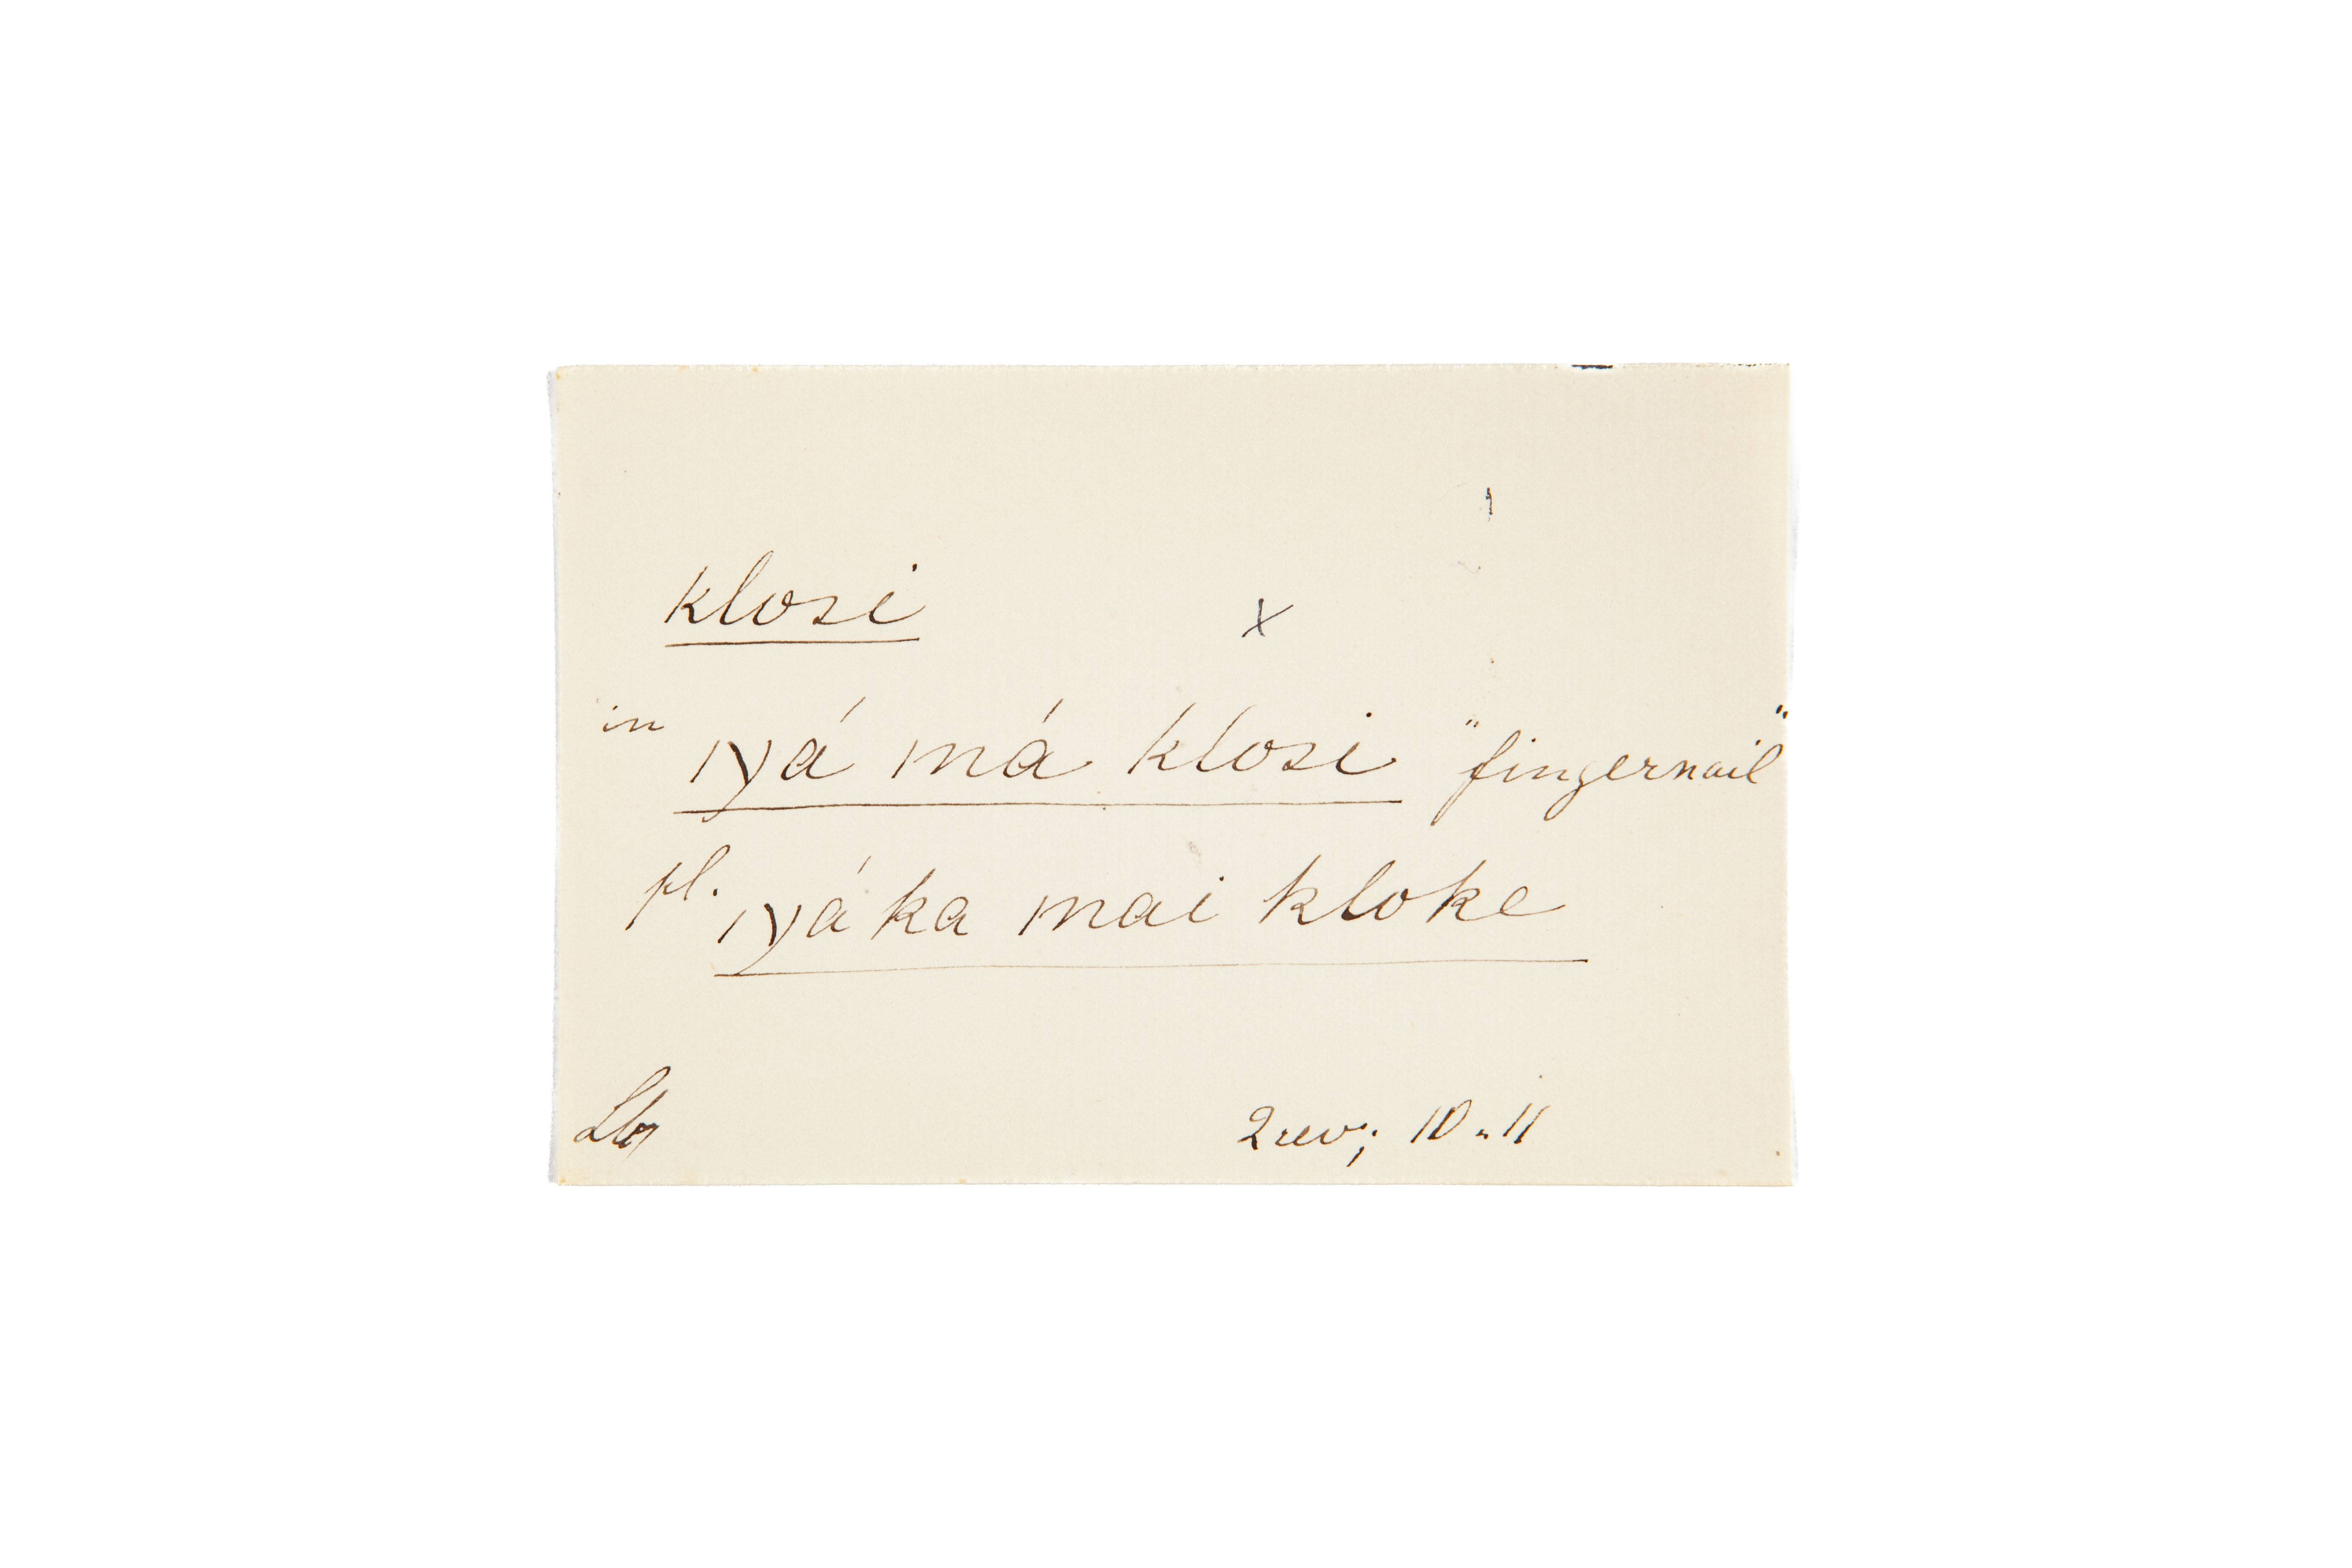 klosi x
in ŋá má klosi "fingernail"
pl. ŋáka mai kloke
2rev; 10-11